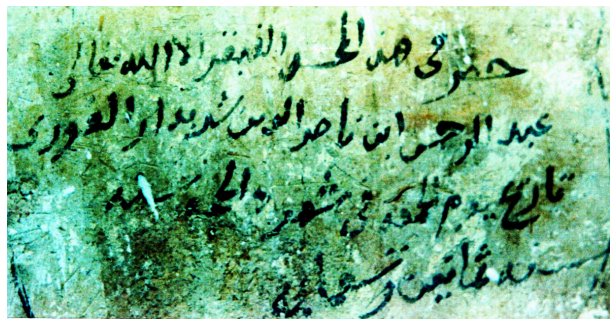 حضر في هذا الحسن الفقير الا الله تعالى
عبد الرحمن ابن ناصر الدين شديدار الغوري
تاريخ يوم الجمعة في شهر ذالحجة سنة
سنة ثمانين وتسعماية